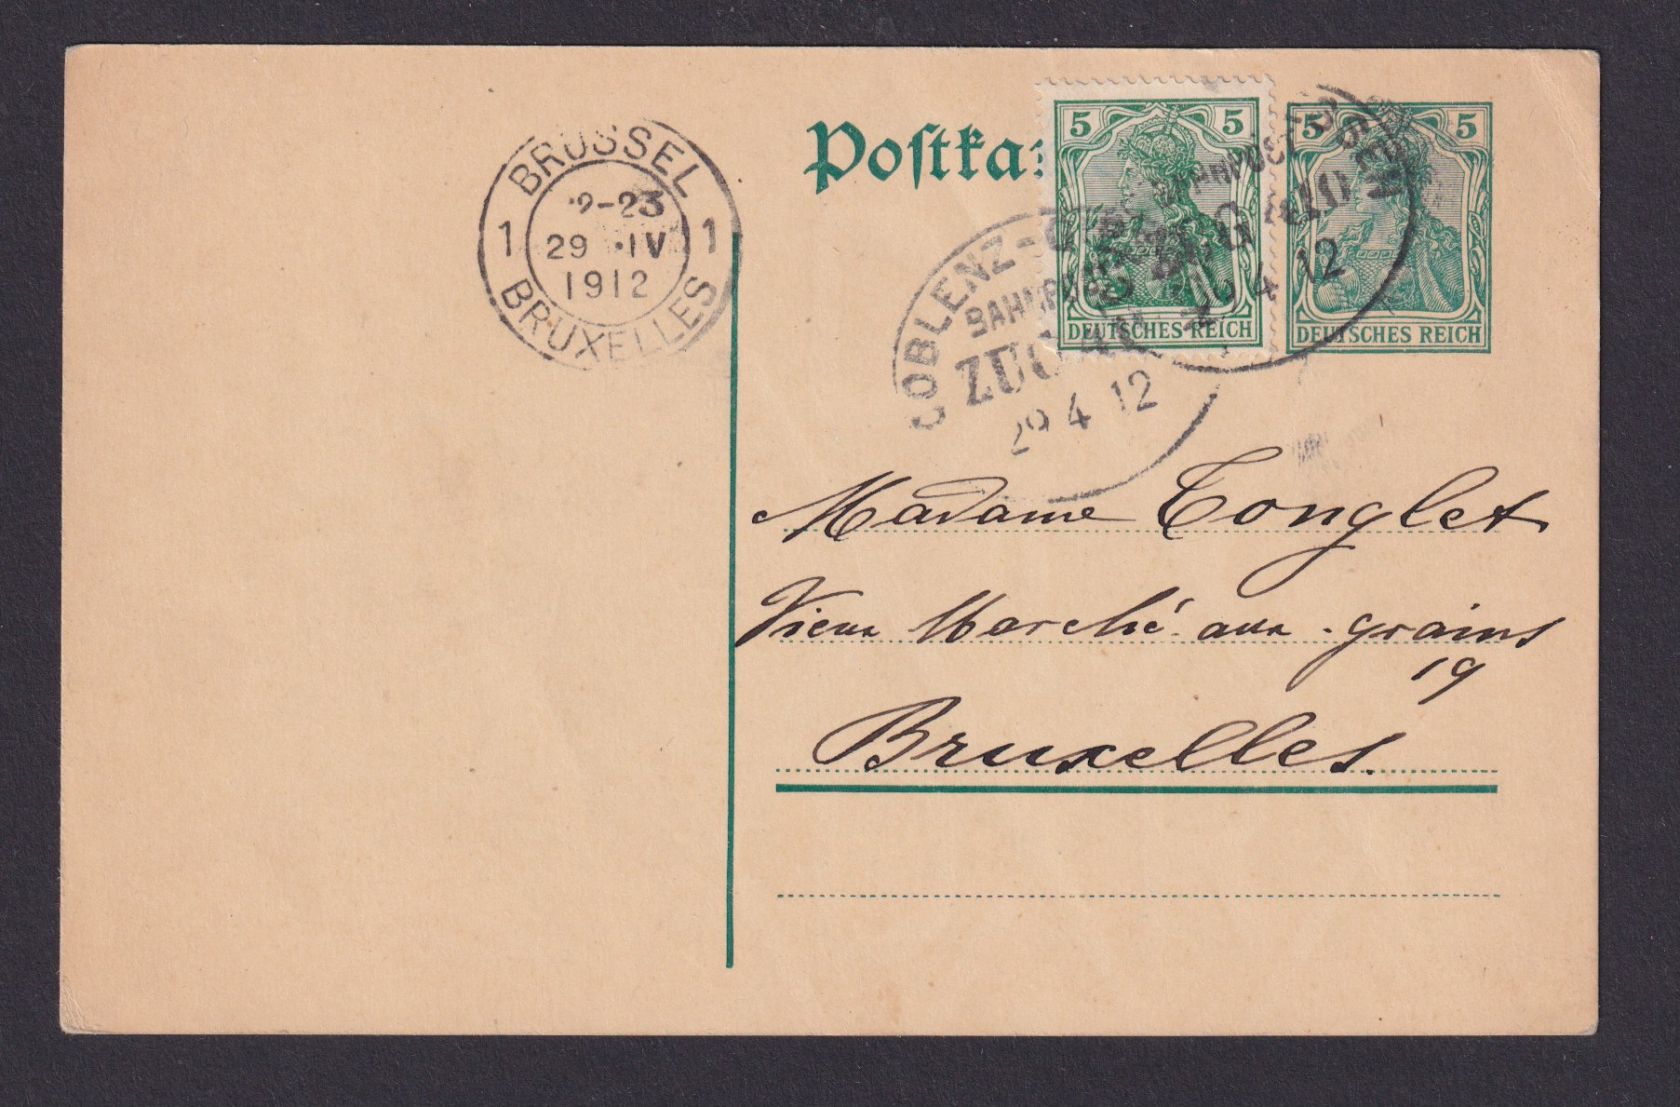 BRÜSSEL
1 1
-23
29 IV
1912
BRUXELLES
Postka
5 5
DEUTSCHES REICH
5 5
DEUTSCHES REICH
COBLENZ-
BAHNPOST
ZUG
29 4 12
BAHNPOST
ZUG
4 12
Madame Tonglet
Vieux Marché aux grains
19
Bruxelles.